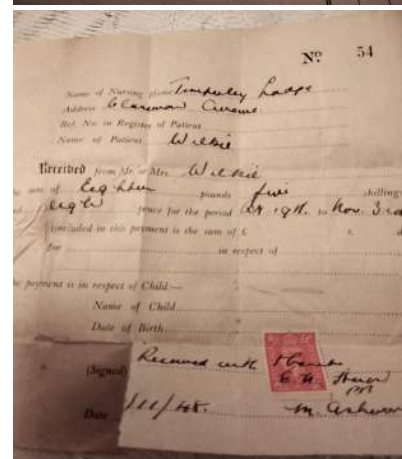 No. 54
Name of Nursing Home Timperley Lodge
Address Claremont Avenue
Ref. No. in Register of Patient
Name of Patient Wilkie
Received from Mr. or Mrs. Wilkie
sum of Eighteen pounds five shillings
eight pence for the period Oct. 19th to Nov. 3rd
included in this payment is the sum of £ s. d
for in respect of
payment is in respect of Child:—
Name of Child
Date of Birth
(Signed) Received with thanks
E. A.
pp
Date /11/48. M.